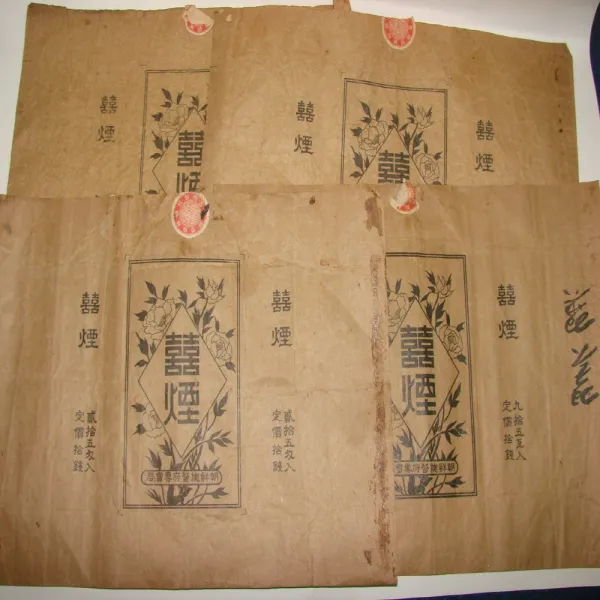 囍煙
囍煙
囍煙
囍
囍煙
囍煙
貳拾五匁入
定價拾錢
囍煙
朝鮮總督府專賣局
囍煙
貳拾五匁入
定價拾錢
囍煙
朝鮮總督府專賣局
囍煙
九拾五瓦入
定價拾錢